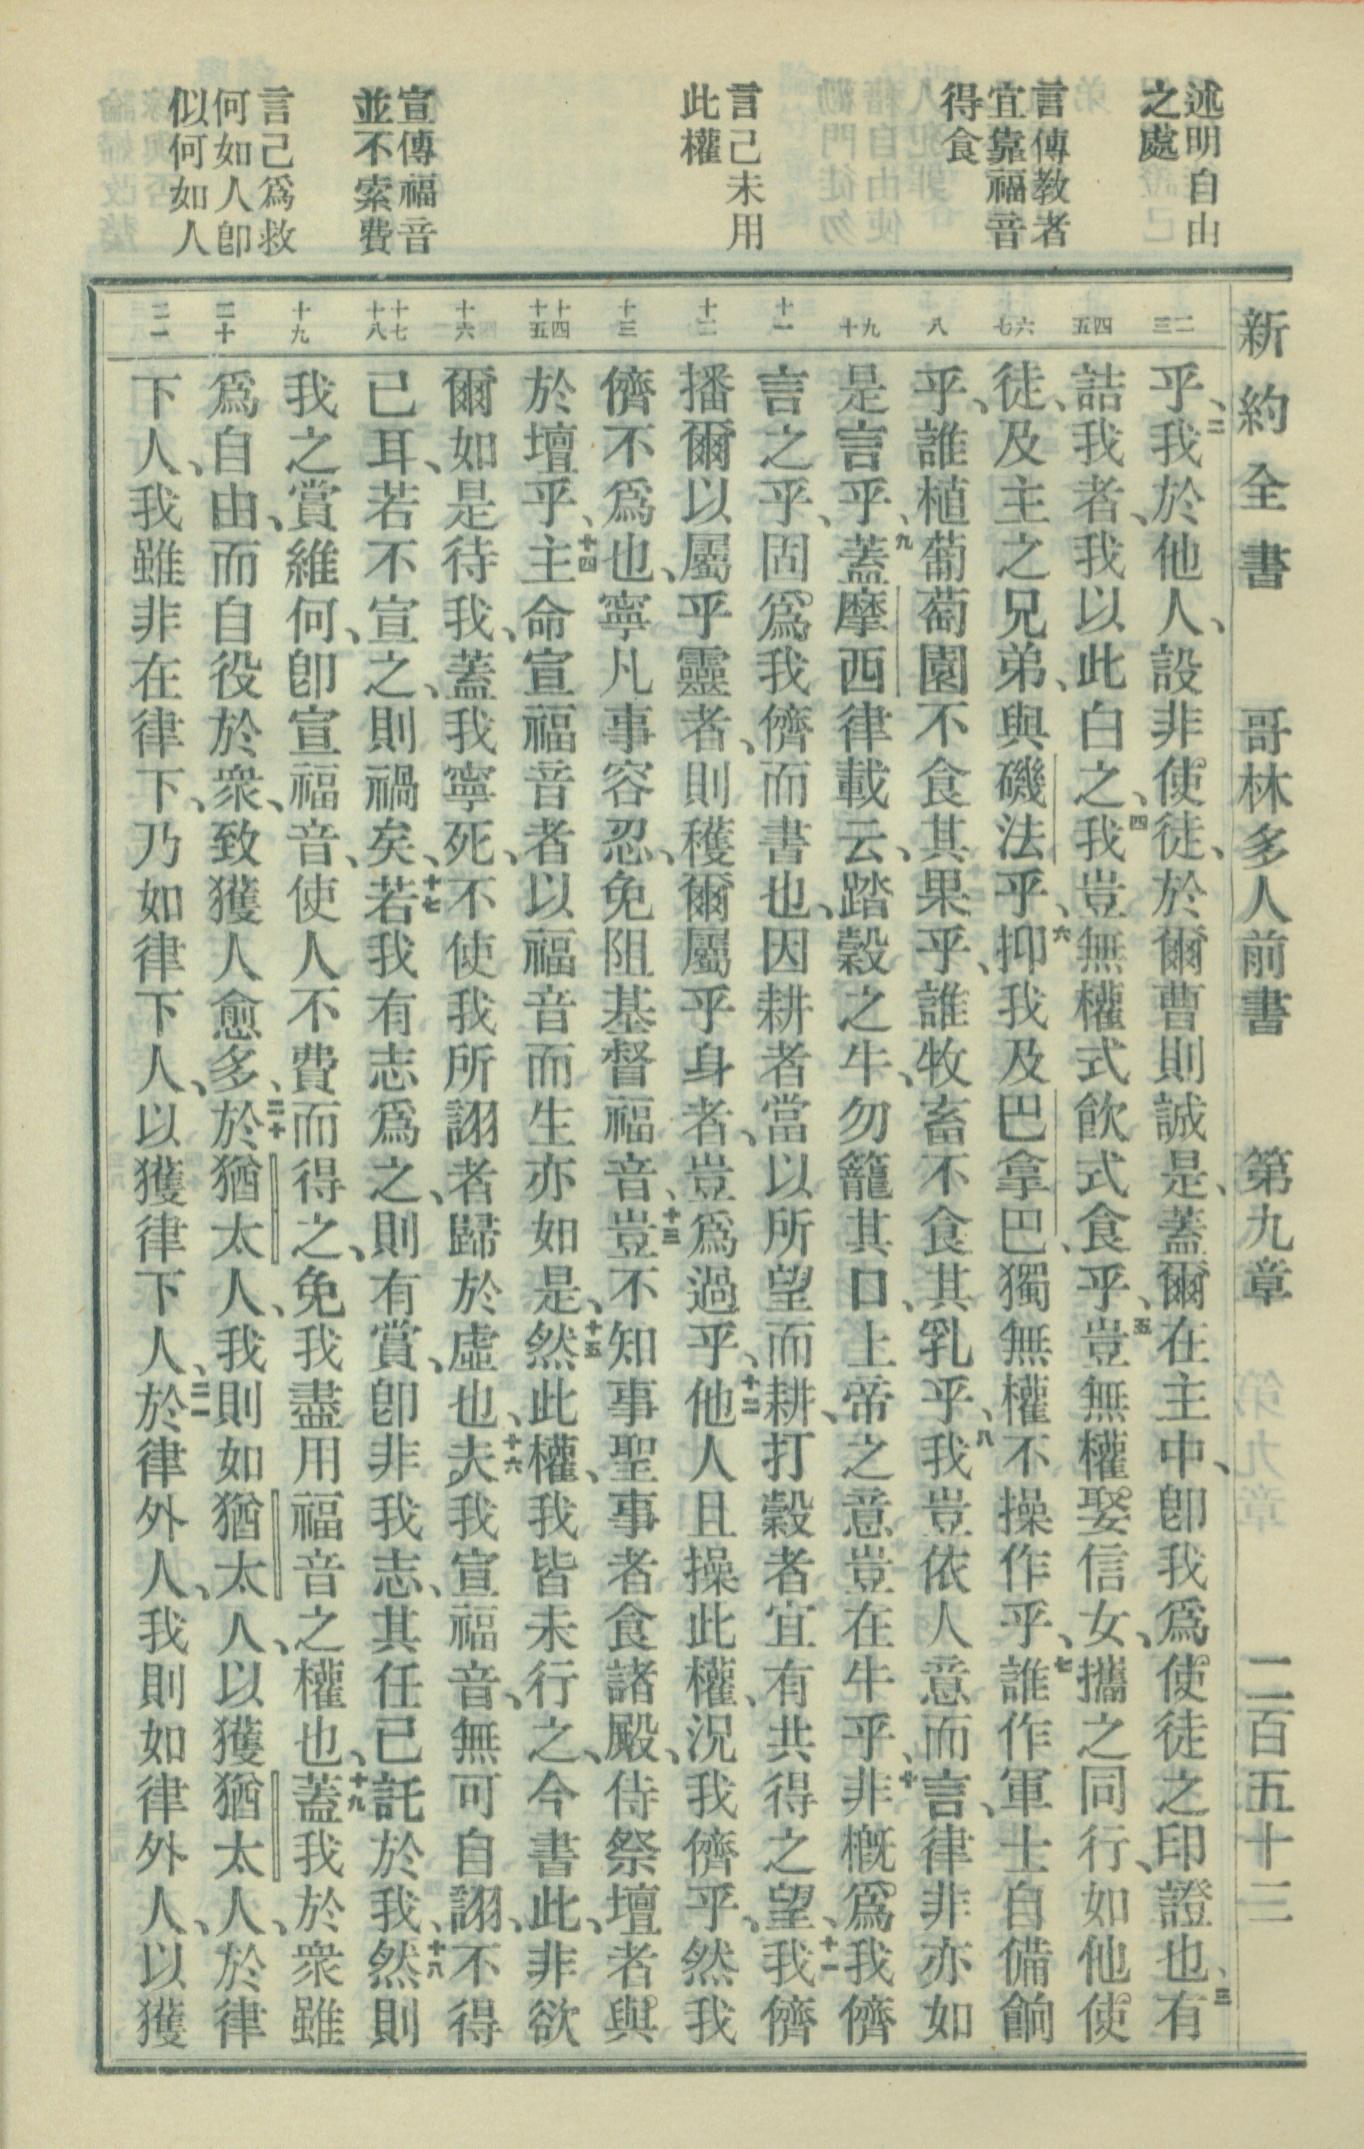 述明自由
之處
言傳教者
宜靠福音
得食
言己未用
此權
宣傳福音
並不索費
言己爲救
何如人卽
似何如人
新約全書 哥林多人前書 第九章 二百五十二
二 三
四 五
六 七
八
九 十
十一
十二
十三
十四 十五
十六
十七 十八
十九
二十
二一
乎、二我於他人、設非使徒、於爾曹則誠是、蓋爾在主中、卽我爲使徒之印證也、三有
詰我者、我以此白之、四我豈無權式飮式食乎、五豈無權娶信女、攜之同行、如他使
徒、及主之兄弟、與磯法乎、六抑我及巴拿巴、獨無權不操作乎、七誰作軍士自備餉
乎、誰植葡萄園不食其果乎、誰牧畜不食其乳乎、八我豈依人意而言、律非亦如
是言乎、九蓋摩西律載云、踏穀之牛、勿籠其口、上帝之意豈在牛乎、十非槪爲我儕
言之乎、固爲我儕而書也、因耕者當以所望而耕、打穀者宜有共得之望、十一我儕
播爾以屬乎靈者、則穫爾屬乎身者、豈爲過乎、十二他人且操此權、況我儕乎、然我
儕不爲也、寧凡事容忍、免阻基督福音、十三豈不知事聖事者食諸殿、侍祭壇者與
於壇乎、十四主命宣福音者以福音而生亦如是、十五然此權、我皆未行之、今書此、非欲
爾如是待我、蓋我寧死、不使我所詡者歸於虛也、十六夫我宣福音、無可自詡、不得
已耳、若不宣之、則禍矣、十七若我有志爲之、則有賞、卽非我志、其任已託於我、十八然則
我之賞維何、卽宣福音、使人不費而得之、免我盡用福音之權也、十九蓋我於衆雖
爲自由、而自役於衆、致獲人愈多、二十於猶太人、我則如猶太人、以獲猶太人、於律
下人、我雖非在律下、乃如律下人、以獲律下人、二一於律外人、我則如律外人、以獲